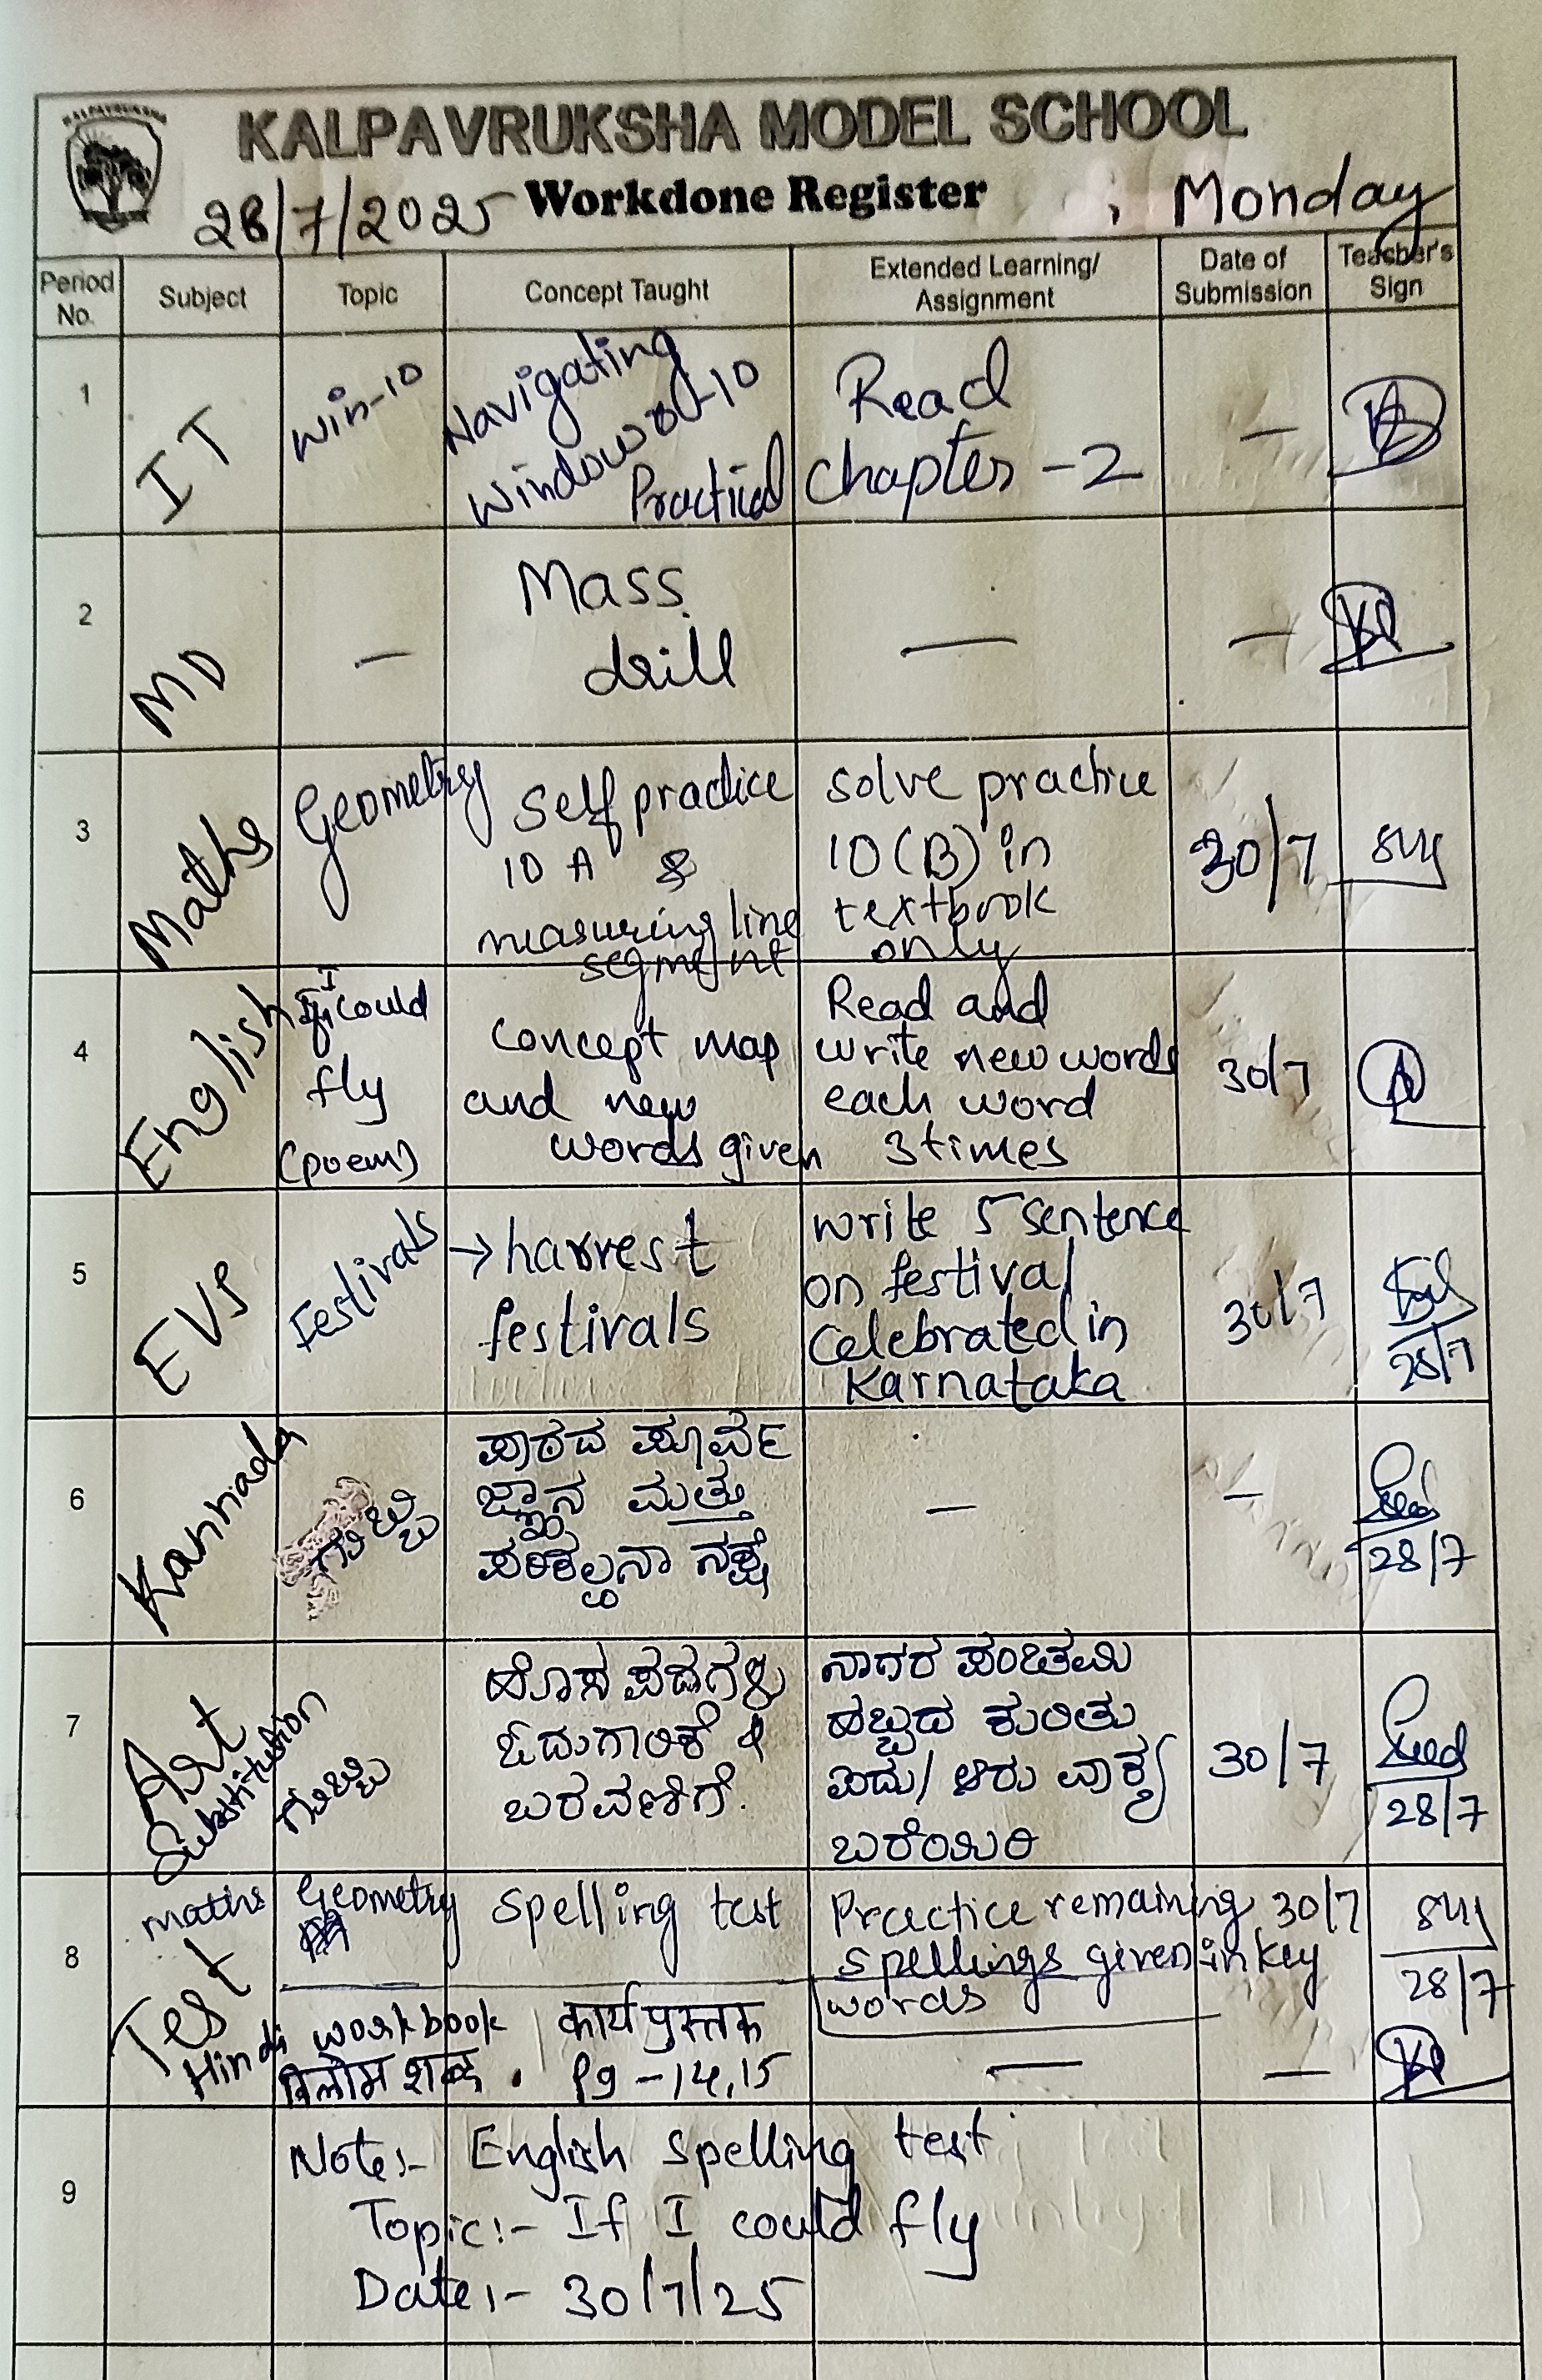 KALPAVRUKSHA
KALPAVRUKSHA MODEL SCHOOL
28/7/2025 Workdone Register , Monday
Period No. Subject Topic Concept Taught Extended Learning/ Assignment Date of Submission Teacher's Sign
1 IT Win-10 Navigating Windows-10 Practical Read Chapter -2 —
2 MD — Mass drill — —
3 Maths Geometry Self practice 10 A & measuring line segment solve practice 10(B) in textbook only 30/7
4 English If I could fly (poem) Concept map and new words given Read and write new words each word 3 times 30/7
5 EVS Festivals → harvest festivals write 5 sentence on festival Celebrated in Karnataka 30/7 28/7
6 Kannada ಗುಬ್ಬಿ ಪಾಠದ ಪೂರ್ವ ಜ್ಞಾನ ಮತ್ತು ಪರಿಕಲ್ಪನಾ ನಕ್ಷೆ — — 28/7
7 Art Substitution ಗುಬ್ಬಿ ಹೊಸ ಪದಗಳು ಓದುಗಾರಿಕೆ & ಬರವಣಿಗೆ. ನಾಗರ ಪಂಚಮಿ ಹಬ್ಬದ ಕುರಿತು ಐದು/ ಆರು ವಾಕ್ಯ ಬರೆಯಿರಿ 30/7 28/7
8 Maths Test Geometry Spelling test Practice remaining spellings given in key words 30/7 28/7
Hindi workbook विलोम शब्द . कार्य पुस्तक Pg - 14,15 — —
9 Note:- English Spelling test
Topic:- If I could fly
Date:- 30/7/25